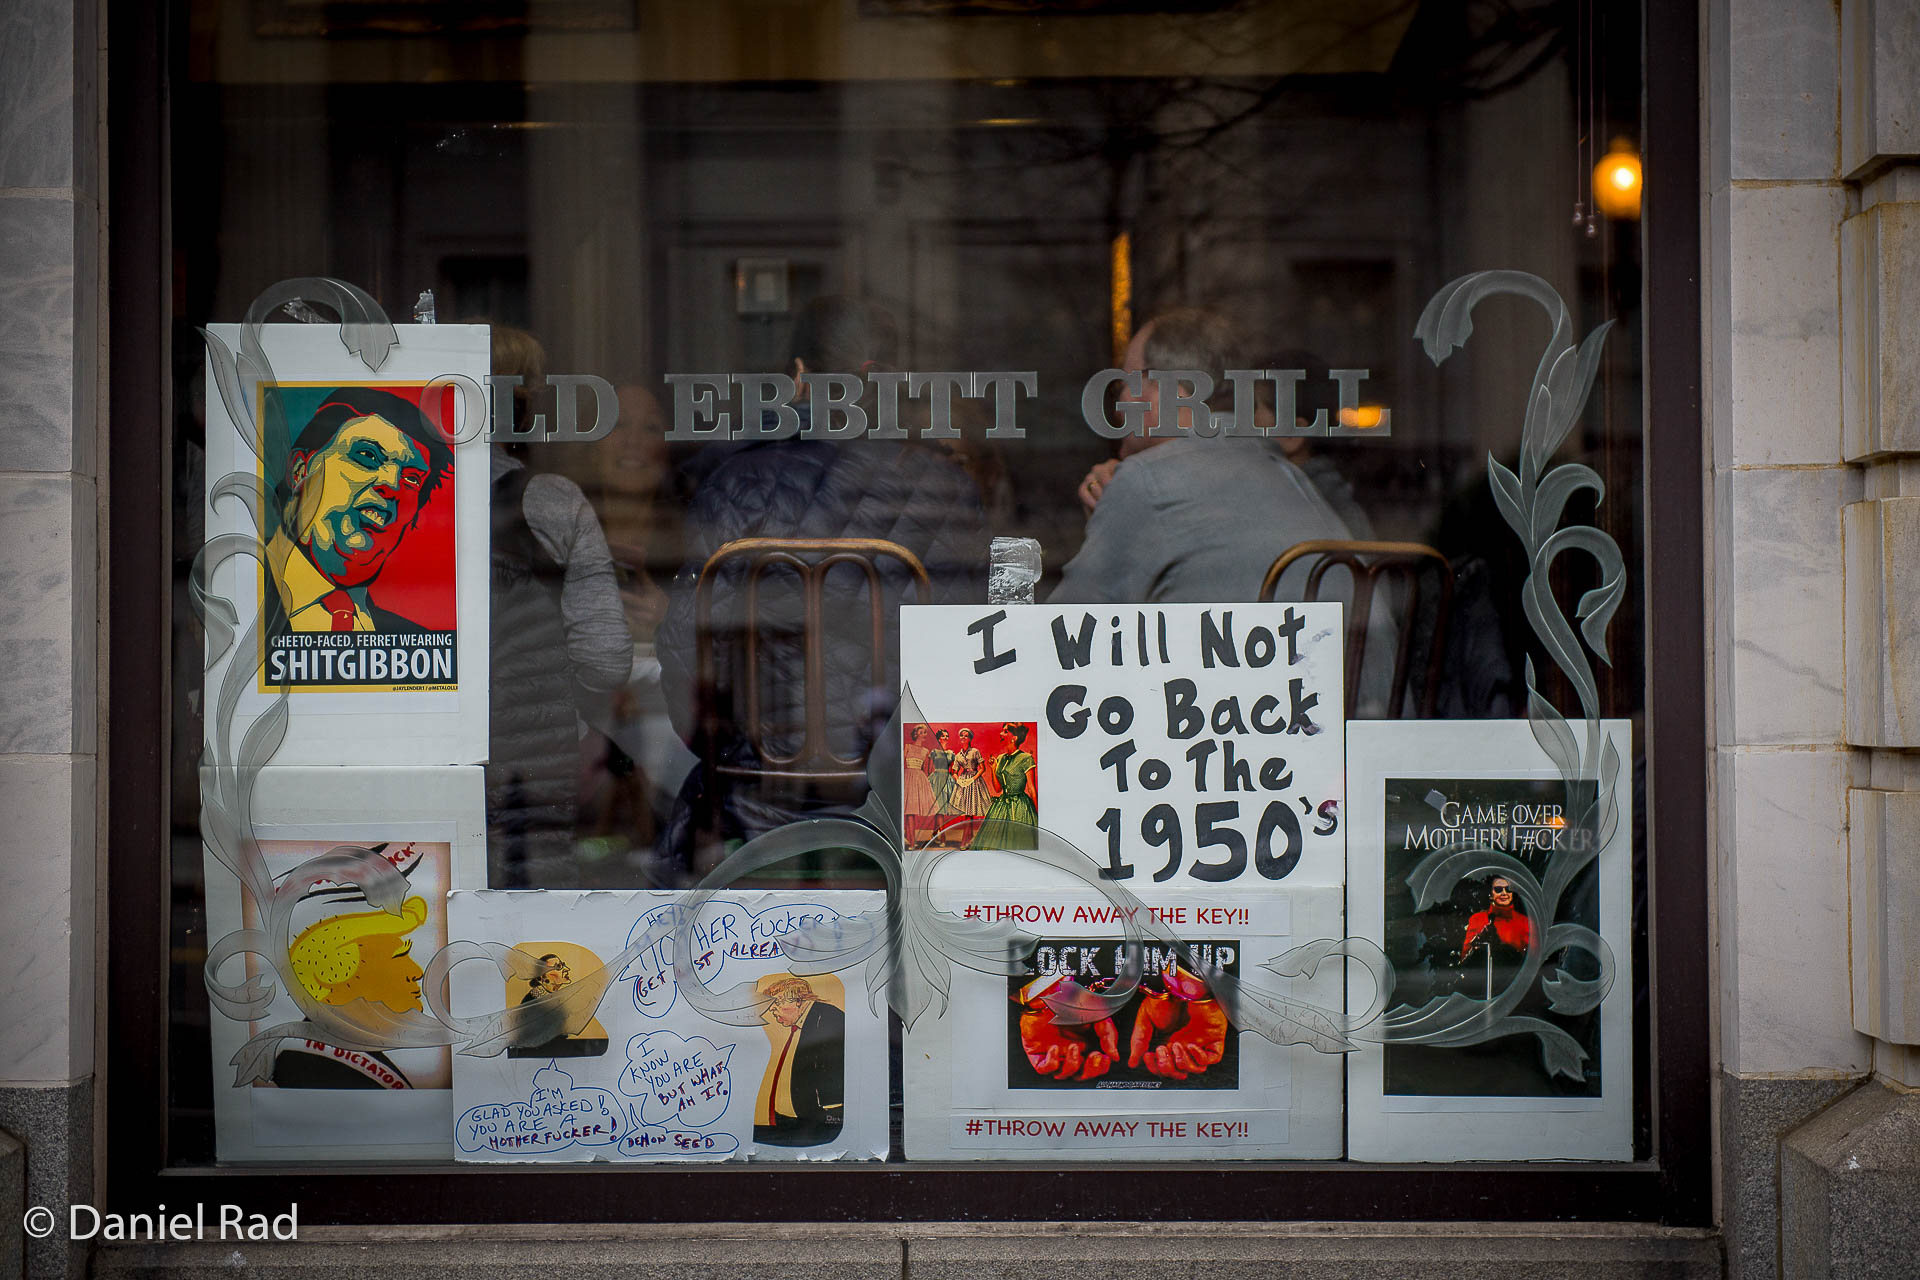 OLD EBBITT GRILL
CHEETO-FACED, FERRET WEARING
SHITGIBBON
I Will Not
Go Back
To The
1950's
GAME OVER
MOTHER F#CKER
#THROW AWAY THE KEY!!
LOCK HIM UP
#THROW AWAY THE KEY!!
HEY!
MOTHER FUCKER
GET
ALREA
I
KNOW
YOU ARE
BUT WHAT
AM I?
DEMON SEED
I'M
GLAD YOU ASKED!
YOU ARE A
MOTHERFUCKER!
IN DICTATOR
© Daniel Rad